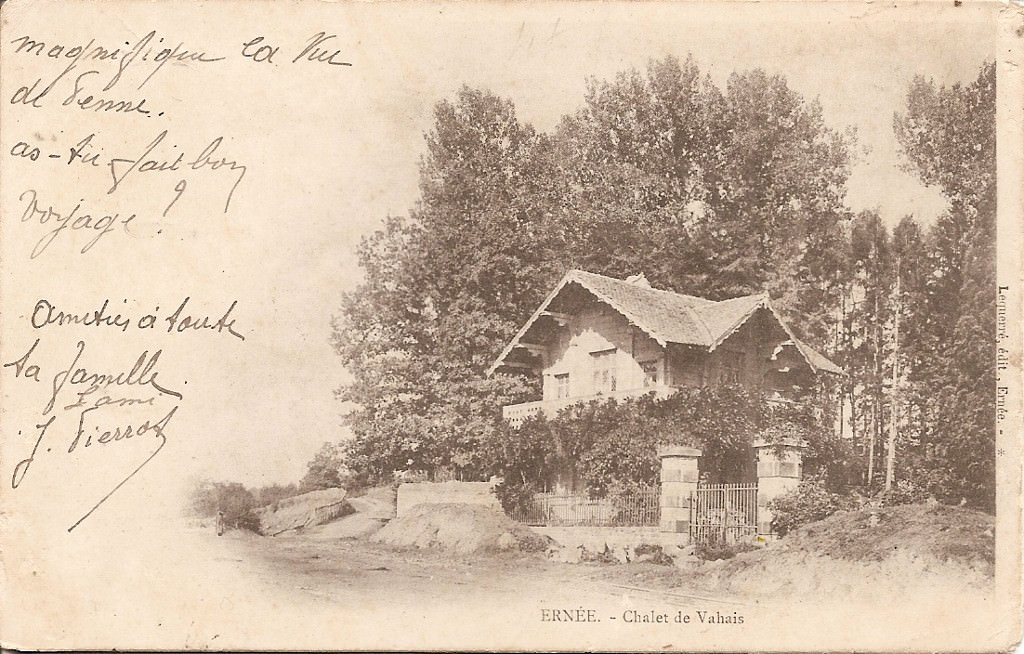 magnifique la Vue
de Vienne.
as-tu fait bon
voyage ?
Amitiés à toute
ta famille.
L'ami
J. Pierrot
Leguerré, édit., Ernée. - *
ERNÉE. - Chalet de Vahais